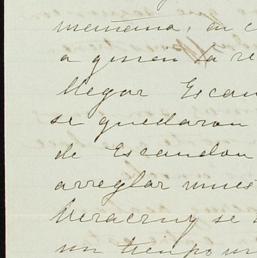 mañana, en c
a quien la re
llegar Escan
se quedaron
de Escandon
arreglar nues
Veracruz se
un tiempo un